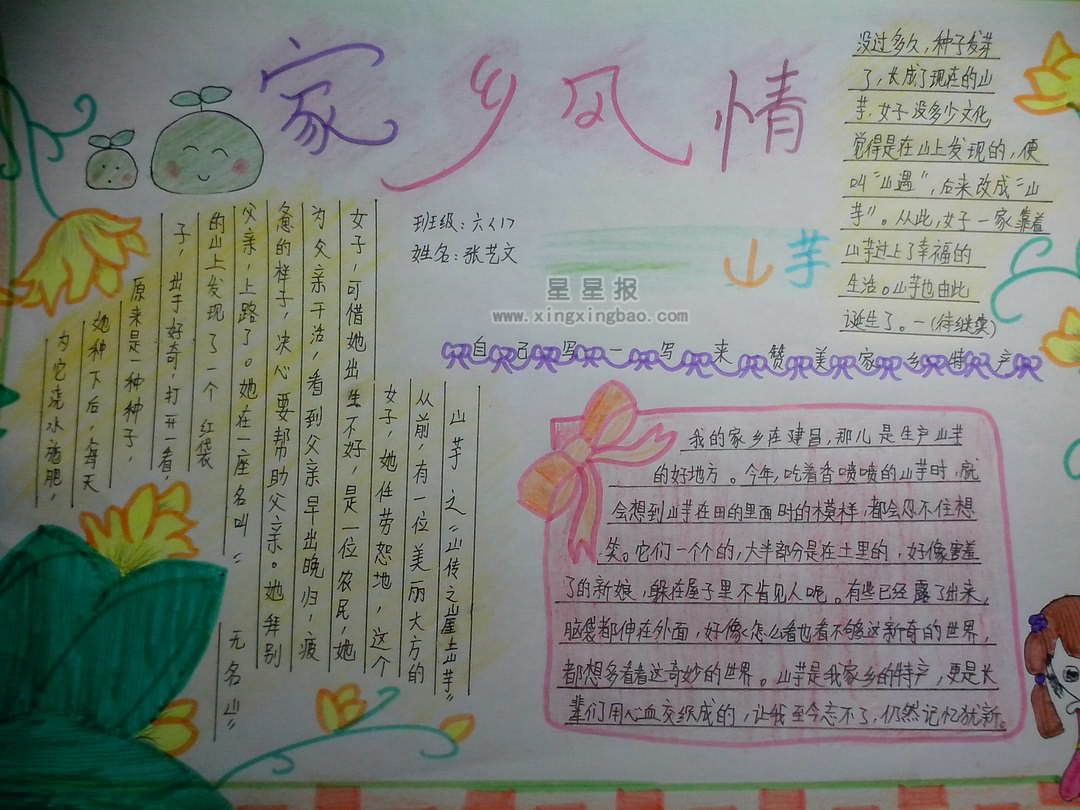 家乡风情
班级：六（1）
姓名：张艺文
山芋
星星报
www.xingxingbao.com
自己写一写来赞美家乡特产
山芋之"山传之
从前，有一位美丽大方的
女子，她任劳恕地，这个
女子，可惜她出生不好，是一位农民，她
为父亲干活，看到父亲早出晚归，疲
惫的样子，决心要帮助父亲。她拜别
父亲，上路了。她在一座名叫"无名山"
的山上发现了一个红袋
子，出于好奇，打开一看，
原来是一种种子，
她种下后，每天
为它浇水施肥，
没过多久，种子发芽
了，长成了现在的山
芋，女子没多少文化
觉得是在山上发现的，便
叫"山遇"，后来改成"山
芋"。从此，女子一家靠着
山芋过上了幸福的
生活。山芋也由此
诞生了。一（待继续）
我的家乡在建昌，那儿是生产山芋
的好地方。今年，吃着香喷喷的山芋时，就
会想到山芋在田的里面时的模样，都会忍不住想
笑。它们一个个的，大半部分是在土里的，好像害羞
了的新娘，躲在屋子里不肯见人呢。有些已经露了出来，
脑袋都伸在外面，好像怎么看也看不够这新奇的世界，
都想多看看这奇妙的世界。山芋是我家乡的特产，更是长
辈们用心血交织成的，让我至今忘不了，仍然记忆犹新。